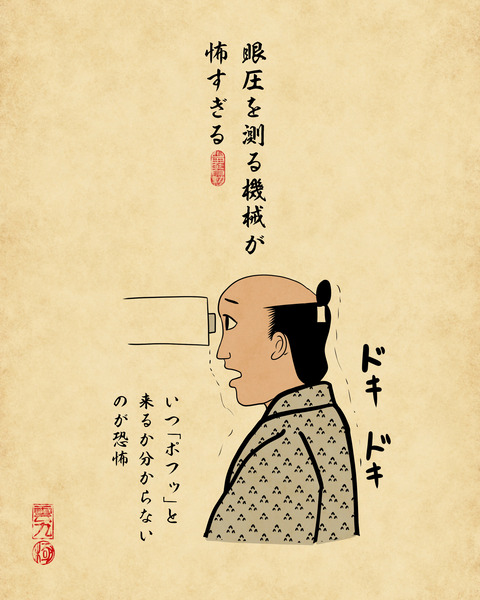 眼圧を測る機械が
怖すぎる
ドキ
ドキ
いつ「ボフッ」と
来るか分からない
のが恐怖